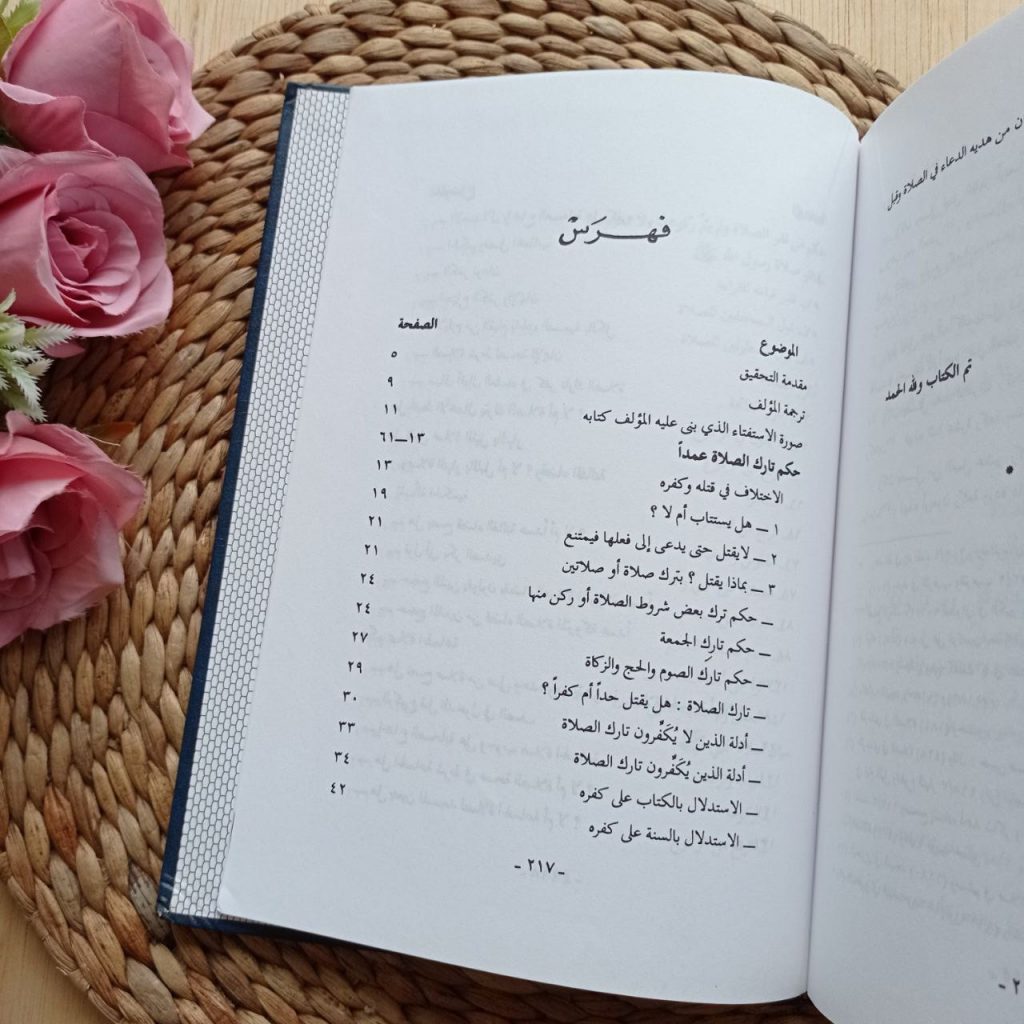 من هديه الدعاء في الصلاة وقبل
تم الكتاب ولله الحمد
*
فهرس
الموضوع الصفحة
مقدمة التحقيق ٥
ترجمة المؤلف ٩
صورة الاستفتاء الذي بنى عليه المؤلف كتابه ١١
حكم تارك الصلاة عمداً ١٣—٦١
الاختلاف في قتله وكفره ١٣
١ — هل يستتاب أم لا ؟ ١٩
٢ — لايقتل حتى يدعى إلى فعلها فيمتنع ٢١
٣ — بماذا يقتل ؟ بترك صلاة أو صلاتين ٢١
— حكم ترك بعض شروط الصلاة أو ركن منها ٢٤
— حكم تاركِ الجمعة ٢٤
— حكم تارك الصوم والحج والزكاة ٢٧
— تارك الصلاة : هل يقتل حداً أم كفراً ؟ ٢٩
— أدلة الذين لا يُكَفِّرون تارك الصلاة ٣٠
— أدلة الذين يُكَفِّرون تارك الصلاة ٣٣
— الاستدلال بالكتاب على كفره ٣٤
— الاستدلال بالسنة على كفره ٤٢
- ٢١٧ -